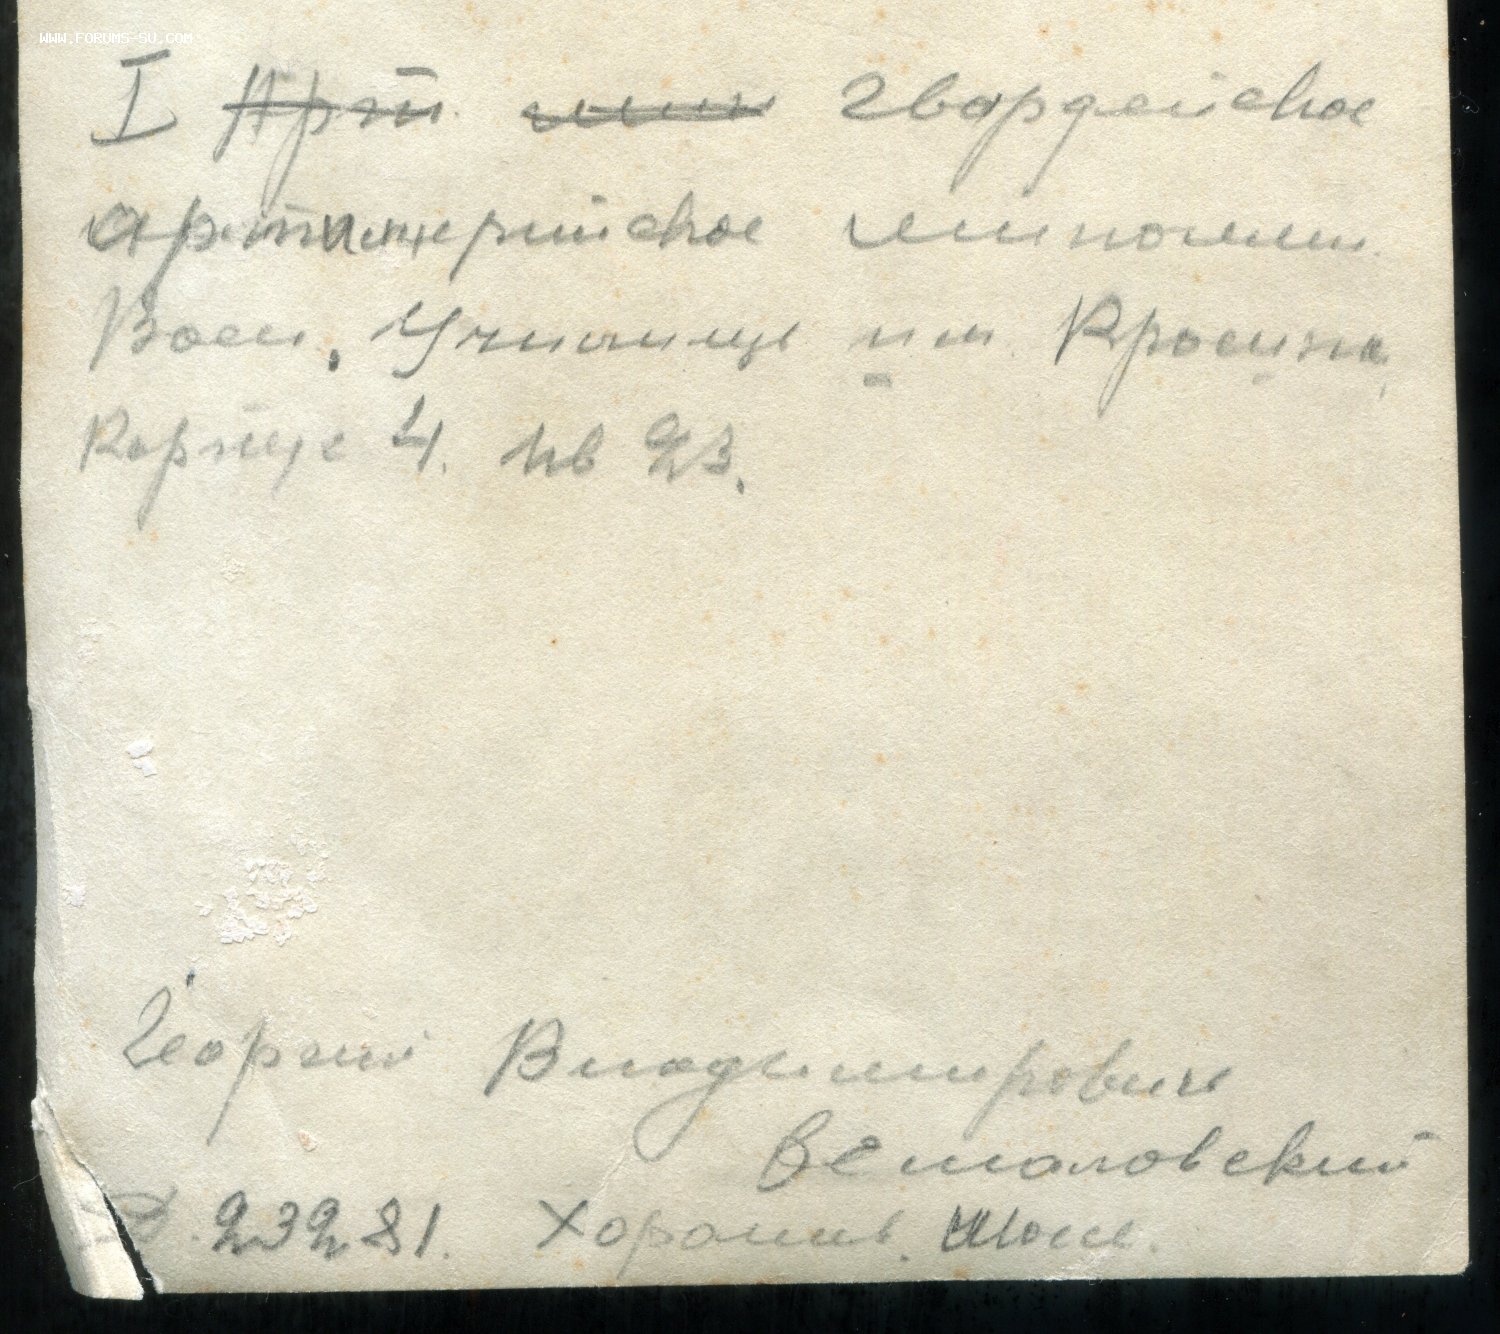 WWW.FORUMS-SU.COM
I Арт мин гвардейское
артиллерийское миномет.
Воен. Училище им. Красина,
Корпус 4. кв 23.
Георгий Владимирович
Д. 23281. Хорош. Шоссе.